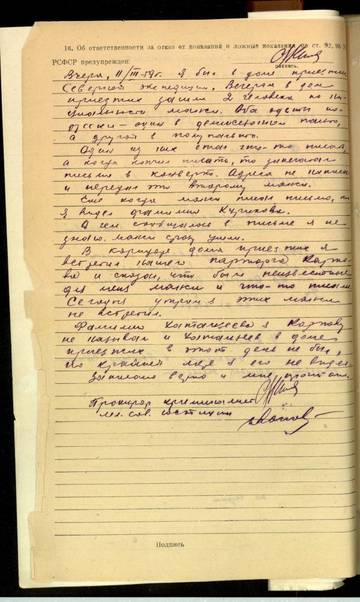 16. Об ответственности за отказ от показаний и ложные показания по ст. 92,
РСФСР предупрежден:
подпись.
Вчера, 11/III-59г. я был в доме приезжих
Северной экспедиции. Вечером в дом
приезжих зашли 2 человека по на-
циональности манси. Оба одеты по
русски - один в демисезонном пальто,
а другой в полупальто.
Один из них стал что-то писать
а когда кончил писать, то запечатал
письмо в конверт. Адреса не написал
и передал это второму манси.
Еще когда манси писал письмо, то
я видел фамилию Курикова.
О чем сообщалось в письме я не
знаю. Манси сразу ушли.
В коридоре дома приезжих я
встретил нашего парторга
и сказал, что были неизвестные
для меня манси и что-то писали
Сегодня утром я этих манси
не встретил.
Фамилию я
не называл и в доме
приезжих в этот день не был,
по крайней мере я его не видел
Записано верно и мне прочитано.
Прокурор криминалист
мл. сов. юстиции
Подпись